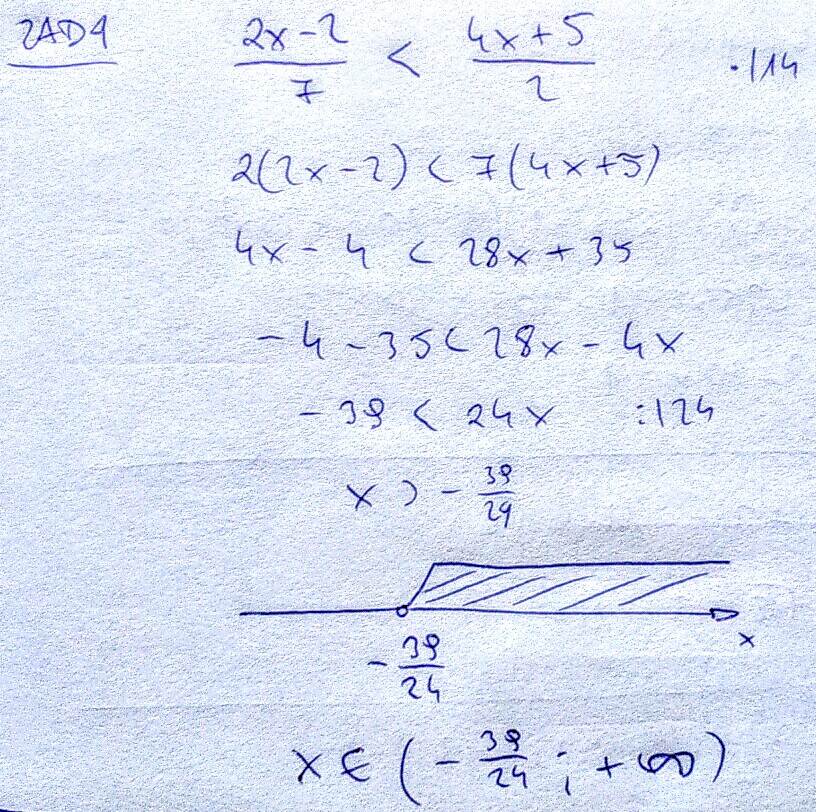 ZAD4 (2x-2)/7 < (4x+5)/2 ·/14
2(2x-2) < 7(4x+5)
4x - 4 < 28x + 35
-4 - 35 < 28x - 4x
-39 < 24x :124
x > - 39/24
x
- 39/24
x ∈ (- 39/24 ; +∞)